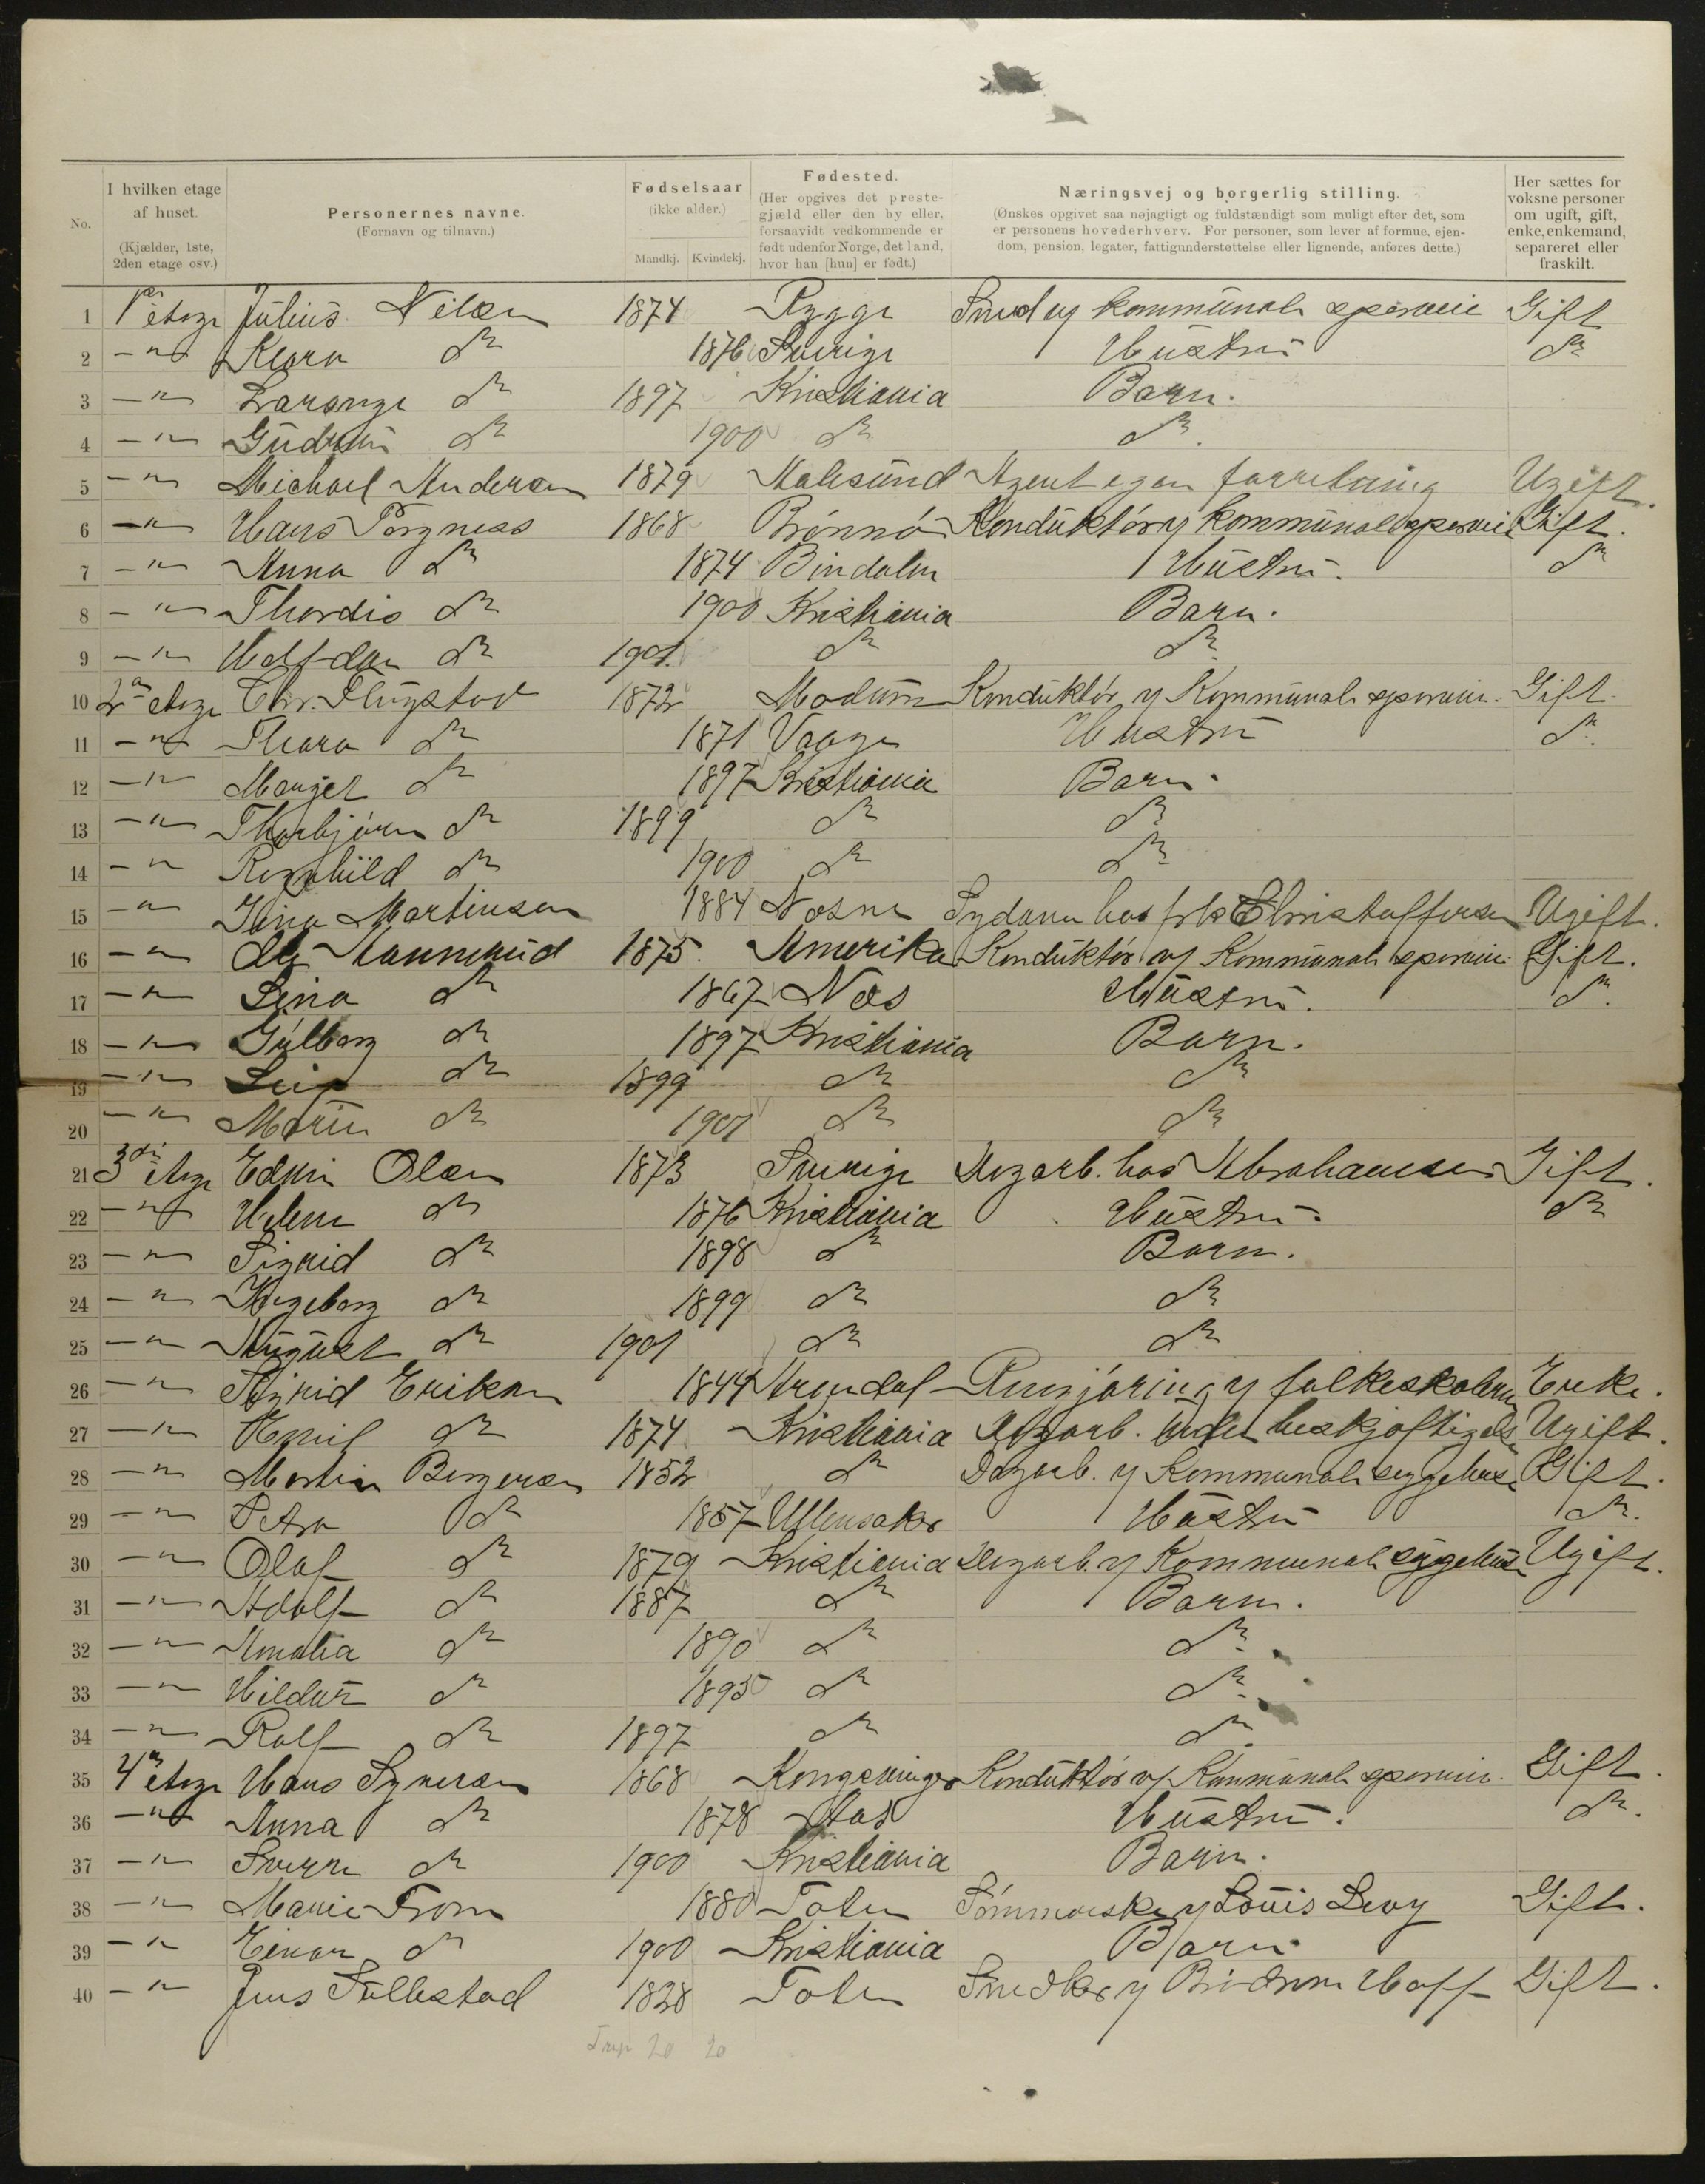 No.
I hvilken etage af huset.
(Kjælder, 1ste, 2den etage osv.)
Personernes navne.
(Fornavn og tilnavn.)
Fødselsaar
(ikke alder.)
Mandkj. Kvindekj.
Fødested.
(Her opgives det prestegjæld eller den by eller, forsaavidt vedkommende er født udenfor Norge, det land, hvor han [hun] er født.)
Næringsvej og borgerlig stilling.
(Ønskes opgivet saa nøjagtigt og fuldstændigt som muligt efter det, som er personens hovederhverv. For personer, som lever af formue, ejendom, pension, legater, fattigunderstøttelse eller lignende, anføres dette.)
Her sættes for voksne personer om ugift, gift, enke, enkemand, separeret eller fraskilt.
1 1ste etage Julius Nilsen 1874 Rygge Smed v/ kommunale sporveie Gift
2 —"— Klara do 1876 Sverige Hustru do
3 —"— do 1897 Kristiania Barn.
4 —"— Gudrun do 1900 do do.
5 —"— Michael Andersen 1879 Aalesund Agent egen forretning Ugift.
6 —"— Hans 1868 Brønnø Konduktør v/ kommunale sporveie Gift.
7 —"— Anna do 1874 Bindalen Hustru. do
8 —"— Thordis do 1900 Kristiania Barn.
9 —"— Halfdan do 1901. do do
10 2den etage Chr. 1872 Modum Konduktør v/ Kommunale sporveie. Gift.
11 —"— Thora do 1871 Vaage Hustru do.
12 —"— Margit do 1897 Kristiania Barn.
13 —"— Thorbjørn do 1899 do do
14 —"— Ragnhild do 1900 do do
15 —"— Martinsen 1884 Næsne Sydame hos frk Christoffersen Ugift.
16 —"— 1875. Amerika Konduktør v/ Kommunale sporveie Gift.
17 —"— Lina do 1867 Næs Hustru. do.
18 —"— Gulborg do 1897 Kristiania Barn.
19 —"— Leif do 1899 do do
20 —"— do 1901 do do
21 3die etage Edvin Olsen 1873 Sverige Dagarb. hos Abrahamsen Gift.
22 —"— Helene do 1876 Kristiania Hustru. do
23 —"— Sigrid do 1898 do Barn.
24 —"— Ingeborg do 1899 do do
25 —"— August do 1901 do do
26 —"— Eriksen 1844 Arendal Rengjøring v/ folkeskolerne Enke.
27 —"— Emil do 1874 Kristiania Dagarb. uden beskjæftigelse Ugift.
28 —"— Martin Bergersen 1852 do Dagarb. v/ Kommunale sygehus Gift.
29 —"— Petra do 1857 Ullensaker Hustru do.
30 —"— Olaf do 1879 Kristiania Dagarb. v/ Kommunale sygehus Ugift.
31 —"— Adolf do 1887 do Barn.
32 —"— Amalia do 1890 do do.
33 —"— Hildur do 1895 do do.
34 —"— Rolf do 1897 do do.
35 4de etage Hans Syversen 1868 Kongsvinger Konduktør v/ Kommunale sporveie. Gift.
36 —"— Anna do 1878 Hustru. do.
37 —"— Sverre do 1900 Kristiania Barn.
38 —"— Marie 1880 Toten v/ Louis Levy Gift.
39 —"— Einar do 1900 Kristiania Barn
40 —"— Jens 1828 Toten Snedker v/ Brødrene Hoff Gift.
20 20